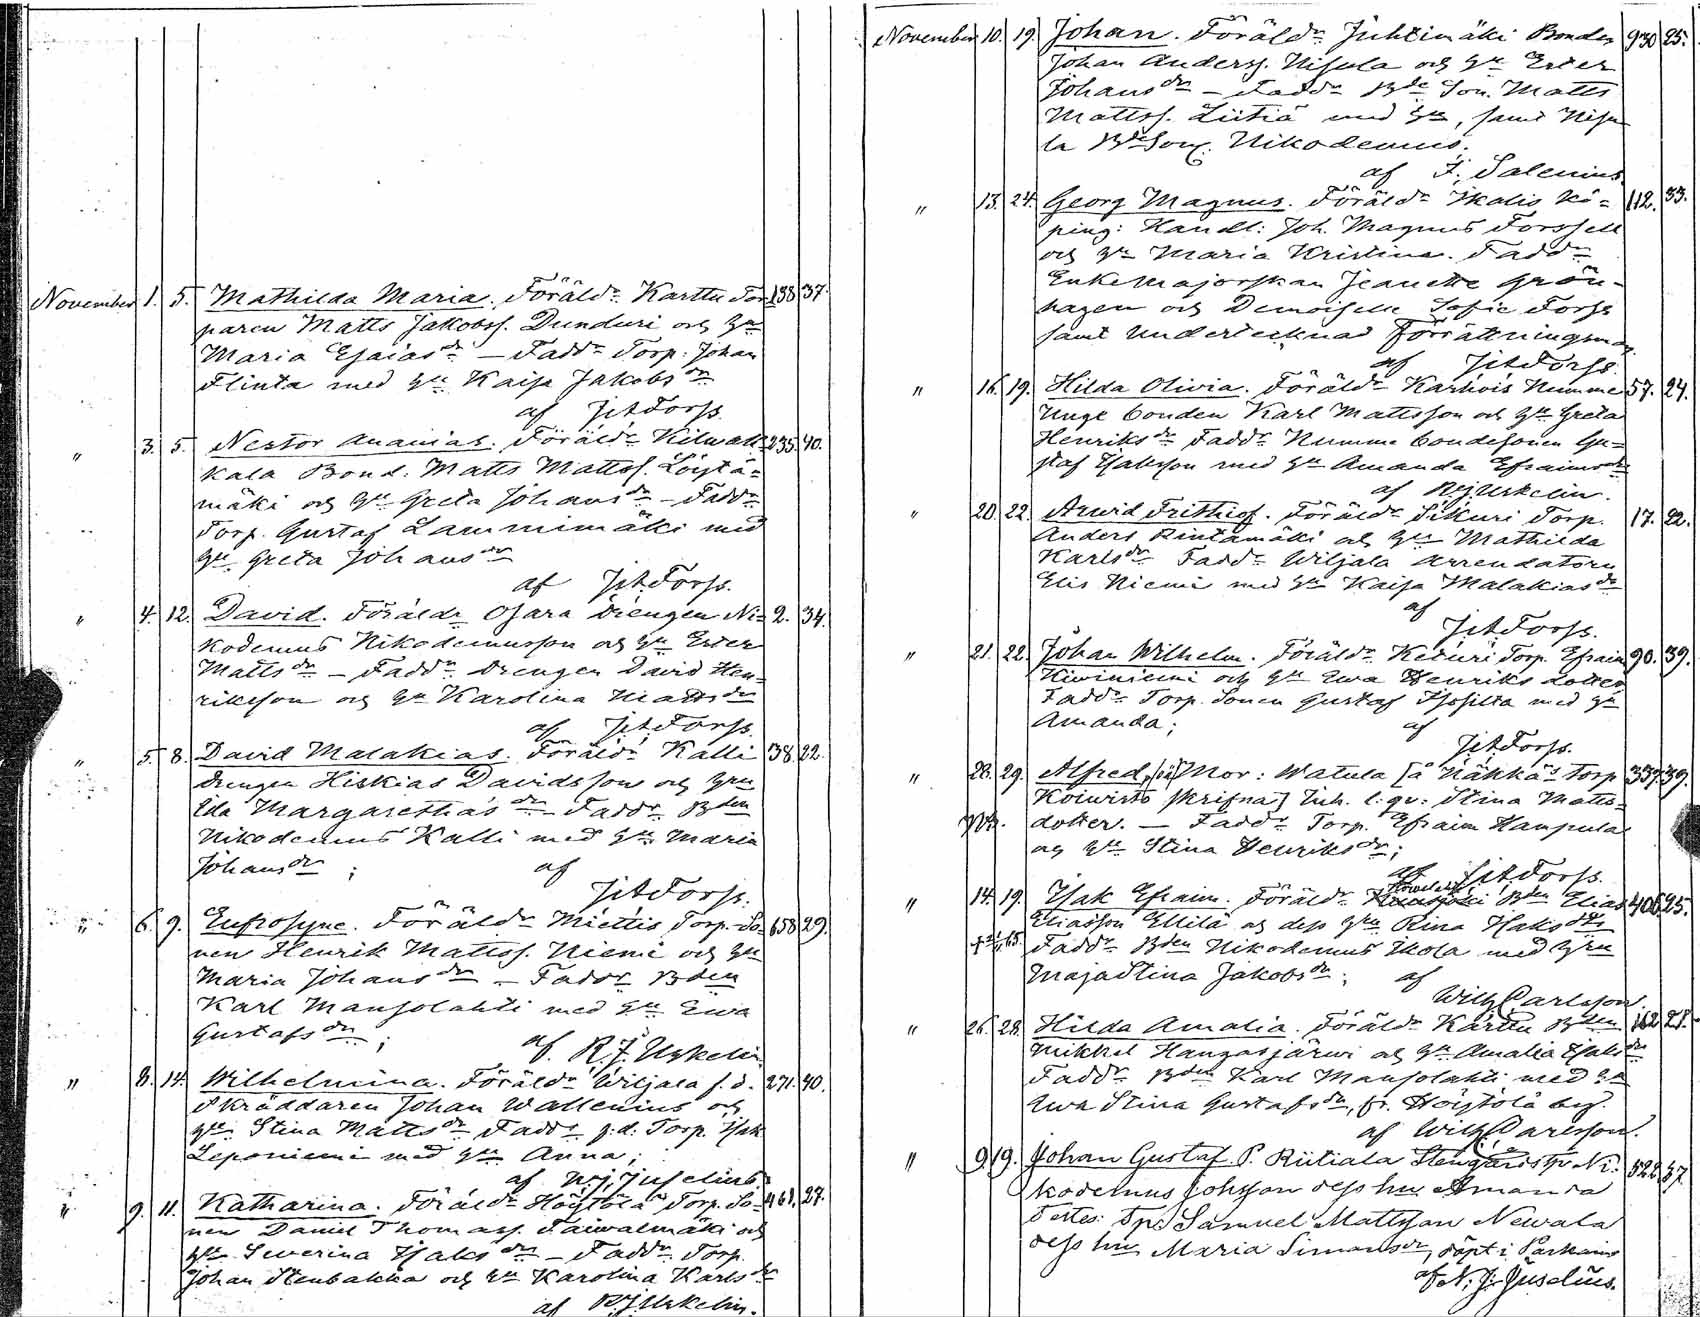 November 1. 5. Mathilda Maria. Föräldr Karttu Tor= 138 37.
paren Matts Jakobss. Dunduri och Hu
Maria Esaiasdr — Faddr Torp. Johan
Flinta med Hu Kaisa Jakobsdr
af JAForss.
" 3. 5. Nestor Ananias. Föräldr Kilwak= 235. 40.
kala Bond. Matts Mattss. Löytä=
mäki och Hu Greta Johansdr — Faddr
Torp. Gustaf Lammimäki med
Hu Greta Johansdr
af JAForss.
" 4. 12. David. Föräldr Osara Drengen Ni= 2. 34.
kodemus Nikodemusson och Hu Ester
Mattsdr — Faddr Drengen David Hen=
riksson och Hu Karolina Mattsdr
af JAForss.
" 5. 8. David Malakias. Föräldr Kalli 38. 22.
Drengen Hiskias Davidsson och Hru
Eda Margarethasdr — Faddr Bden
Nikodemus Kalli med Hu Maria
Johansdr ; af
JAForss.
" 6. 9. Eufrosyne. Föräldr Miettis Torp. So= 658 29.
nen Henrik Mattss. Niemi och Hu
Maria Johansdr — Faddr Bden
Karl Mansolahti med Hu Ewa
Gustafsdr ; af R.J. Urkelin
" 8. 14. Wilhelmina. Föräldr Wiljala f. d. 271. 40.
Skräddaren Johan Wallenius och
Hu Stina Mattsdr Faddr f.d. Torp. Isak
Leponiemi med Hu Anna ;
af N.J. Juselius.
" 9. 11. Katharina. Föräldr Höytölä Torp. So= 461. 27.
nen Daniel Thomass. Taiwalmäki och
Hu Severina Isaksdr — Faddr Torp.
Johan Stenbakka och Hu Karolina Karlsdr
af R.J. Urkelin.
November 10. 19. Johan. Föräldr Juhtimäki Bonden 930 25.
Johan Anderss. Nisula och Hu Ester
Johansdr — Faddr Bde Son. Matts
Mattss. Liitiä med Hu, samt Nisu
la BdeSon. Nikodemus.
af F. Salenius.
" 13. 24. Georg Magnus. Föräldr Ikalis Kö= 112. 33.
ping: Handl: Joh. Magnus Forssell
och Hu Maria Kristina. Faddr
Enkemajorskan Jeanette Grön=
hagen och Demoiselle Sofie Forss
samt undertecknad Förrättningsman
af JAForss.
" 16. 19. Hilda Olivia. Föräldr Karhois Numme 57. 24.
Unge bonden Karl Mattsson och Hu Greta
Henriksdr Faddr Numme bondesonen Gu=
staf Isaksson med Hu Amanda Efraimsdr
af R.J. Urkelin.
" 20. 22. Arwid Frithiof. Föräldr Sikuri Torp. 17. 22.
Anders Rintamäki och Hu Mathilda
Karlsdr Faddr Wiljala Arrendatorn
Elis Niemi med Hu Kaisa Malakiasdr
af
JAForss.
" 21. 22. Johan Wilhelm. Föräldr Keturi Torp. Efraim 90. 39.
Kiwiniemi och Hu Ewa Henriks dotter
Faddr Torp. Sonen Gustaf med Hu
Amanda ; af
JAForss.
" 28. 29. Alfred, (oä) Mor: Watula [å Näkkäs Torp 337. 39.
Koiwisto skrifna] Inh. l: qv: Stina Matts=
dotter. — Faddr Torp. Efraim Haupula
och Hu Stina Henriksdr ;
af JAForss.
" 14. 19. Isak Efraim. Föräldr Bden Elias 406. 25.
Eliasson Ellilä och dess Hru Rina Isaksdr
Faddr Bden Nikodemus Skola med Hru
MajaStina Jakobsdr ; af
Wilh Carlsson.
" 26. 28. Hilda Amalia. Föräldr Karttu Bden 162 28.
Mikkel Hangasjärwi och Hu Amalia Isaksdr
Faddr Bden Karl Mansolahti med Hu
Ewa Stina Gustafsdr, fr. Höytölä by.
af Wilh Carlsson.
" 9 19. Johan Gustaf. P. Riitiala Ni= 522 37
kodemus Johsson dess hu Amanda
Testes: Tp. Samuel Mattsson Newala
dess hu Maria Simonsdr, döpt i Parkano
af N. J. Juselius.